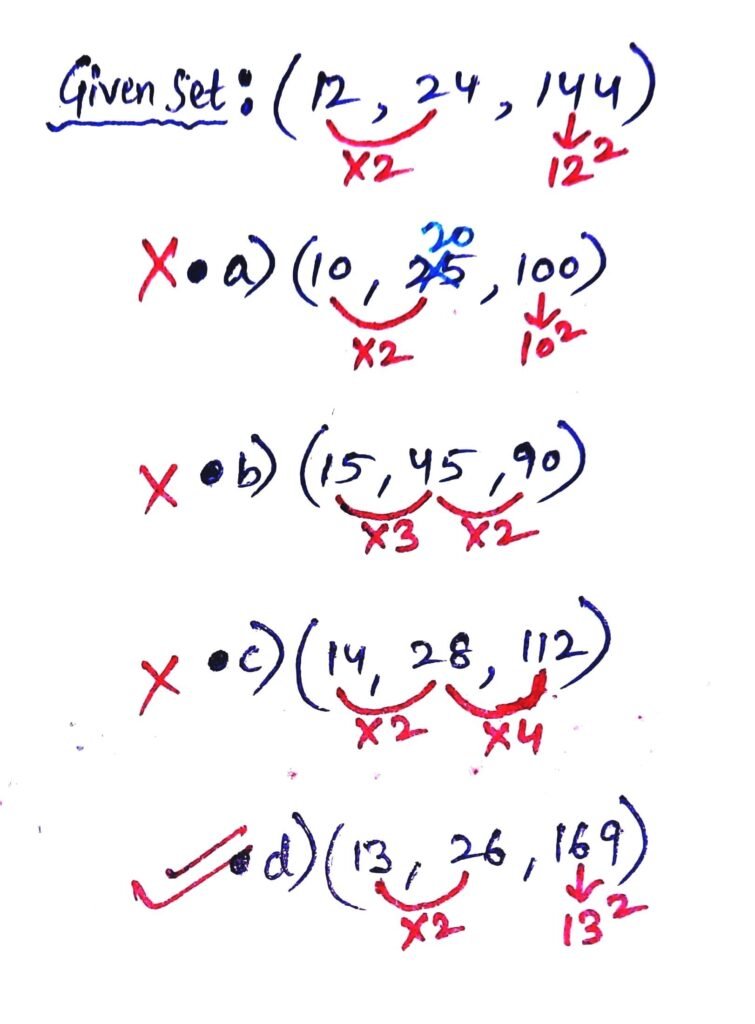 Given Set: (12, 24, 144)
×2 12²
20
× • a) (10, 25, 100)
×2 10²
× • b) (15, 45, 90)
×3 ×2
× • c) (14, 28, 112)
×2 ×4
✓ • d) (13, 26, 169)
×2 13²